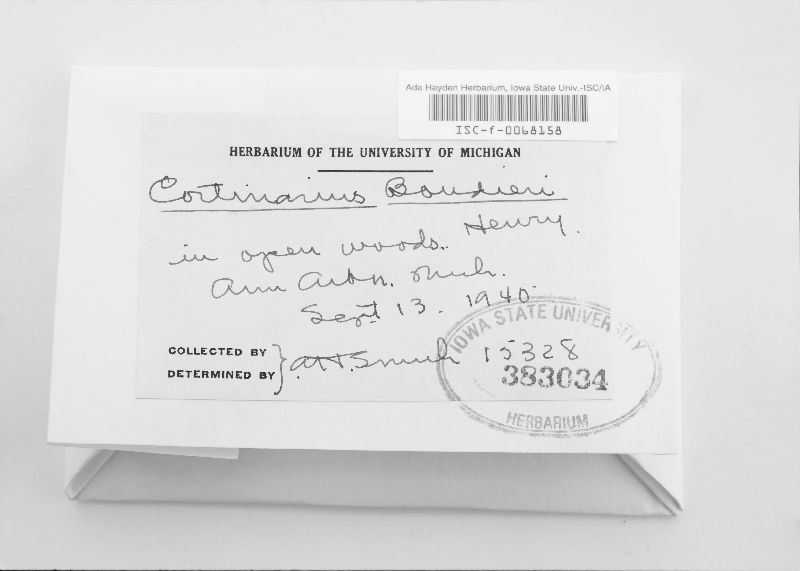 Ada Hayden Herbarium, Iowa State Univ.-ISC/IA
ISC-f-0068158
HERBARIUM OF THE UNIVERSITY OF MICHIGAN
Cortinarius Boudieri
Henry.
in open woods.
Ann Arbor, Mich.
Sept 13. 1940
COLLECTED BY
DETERMINED BY
A.H. Smith 15328
IOWA STATE UNIVERSITY
383034
HERBARIUM